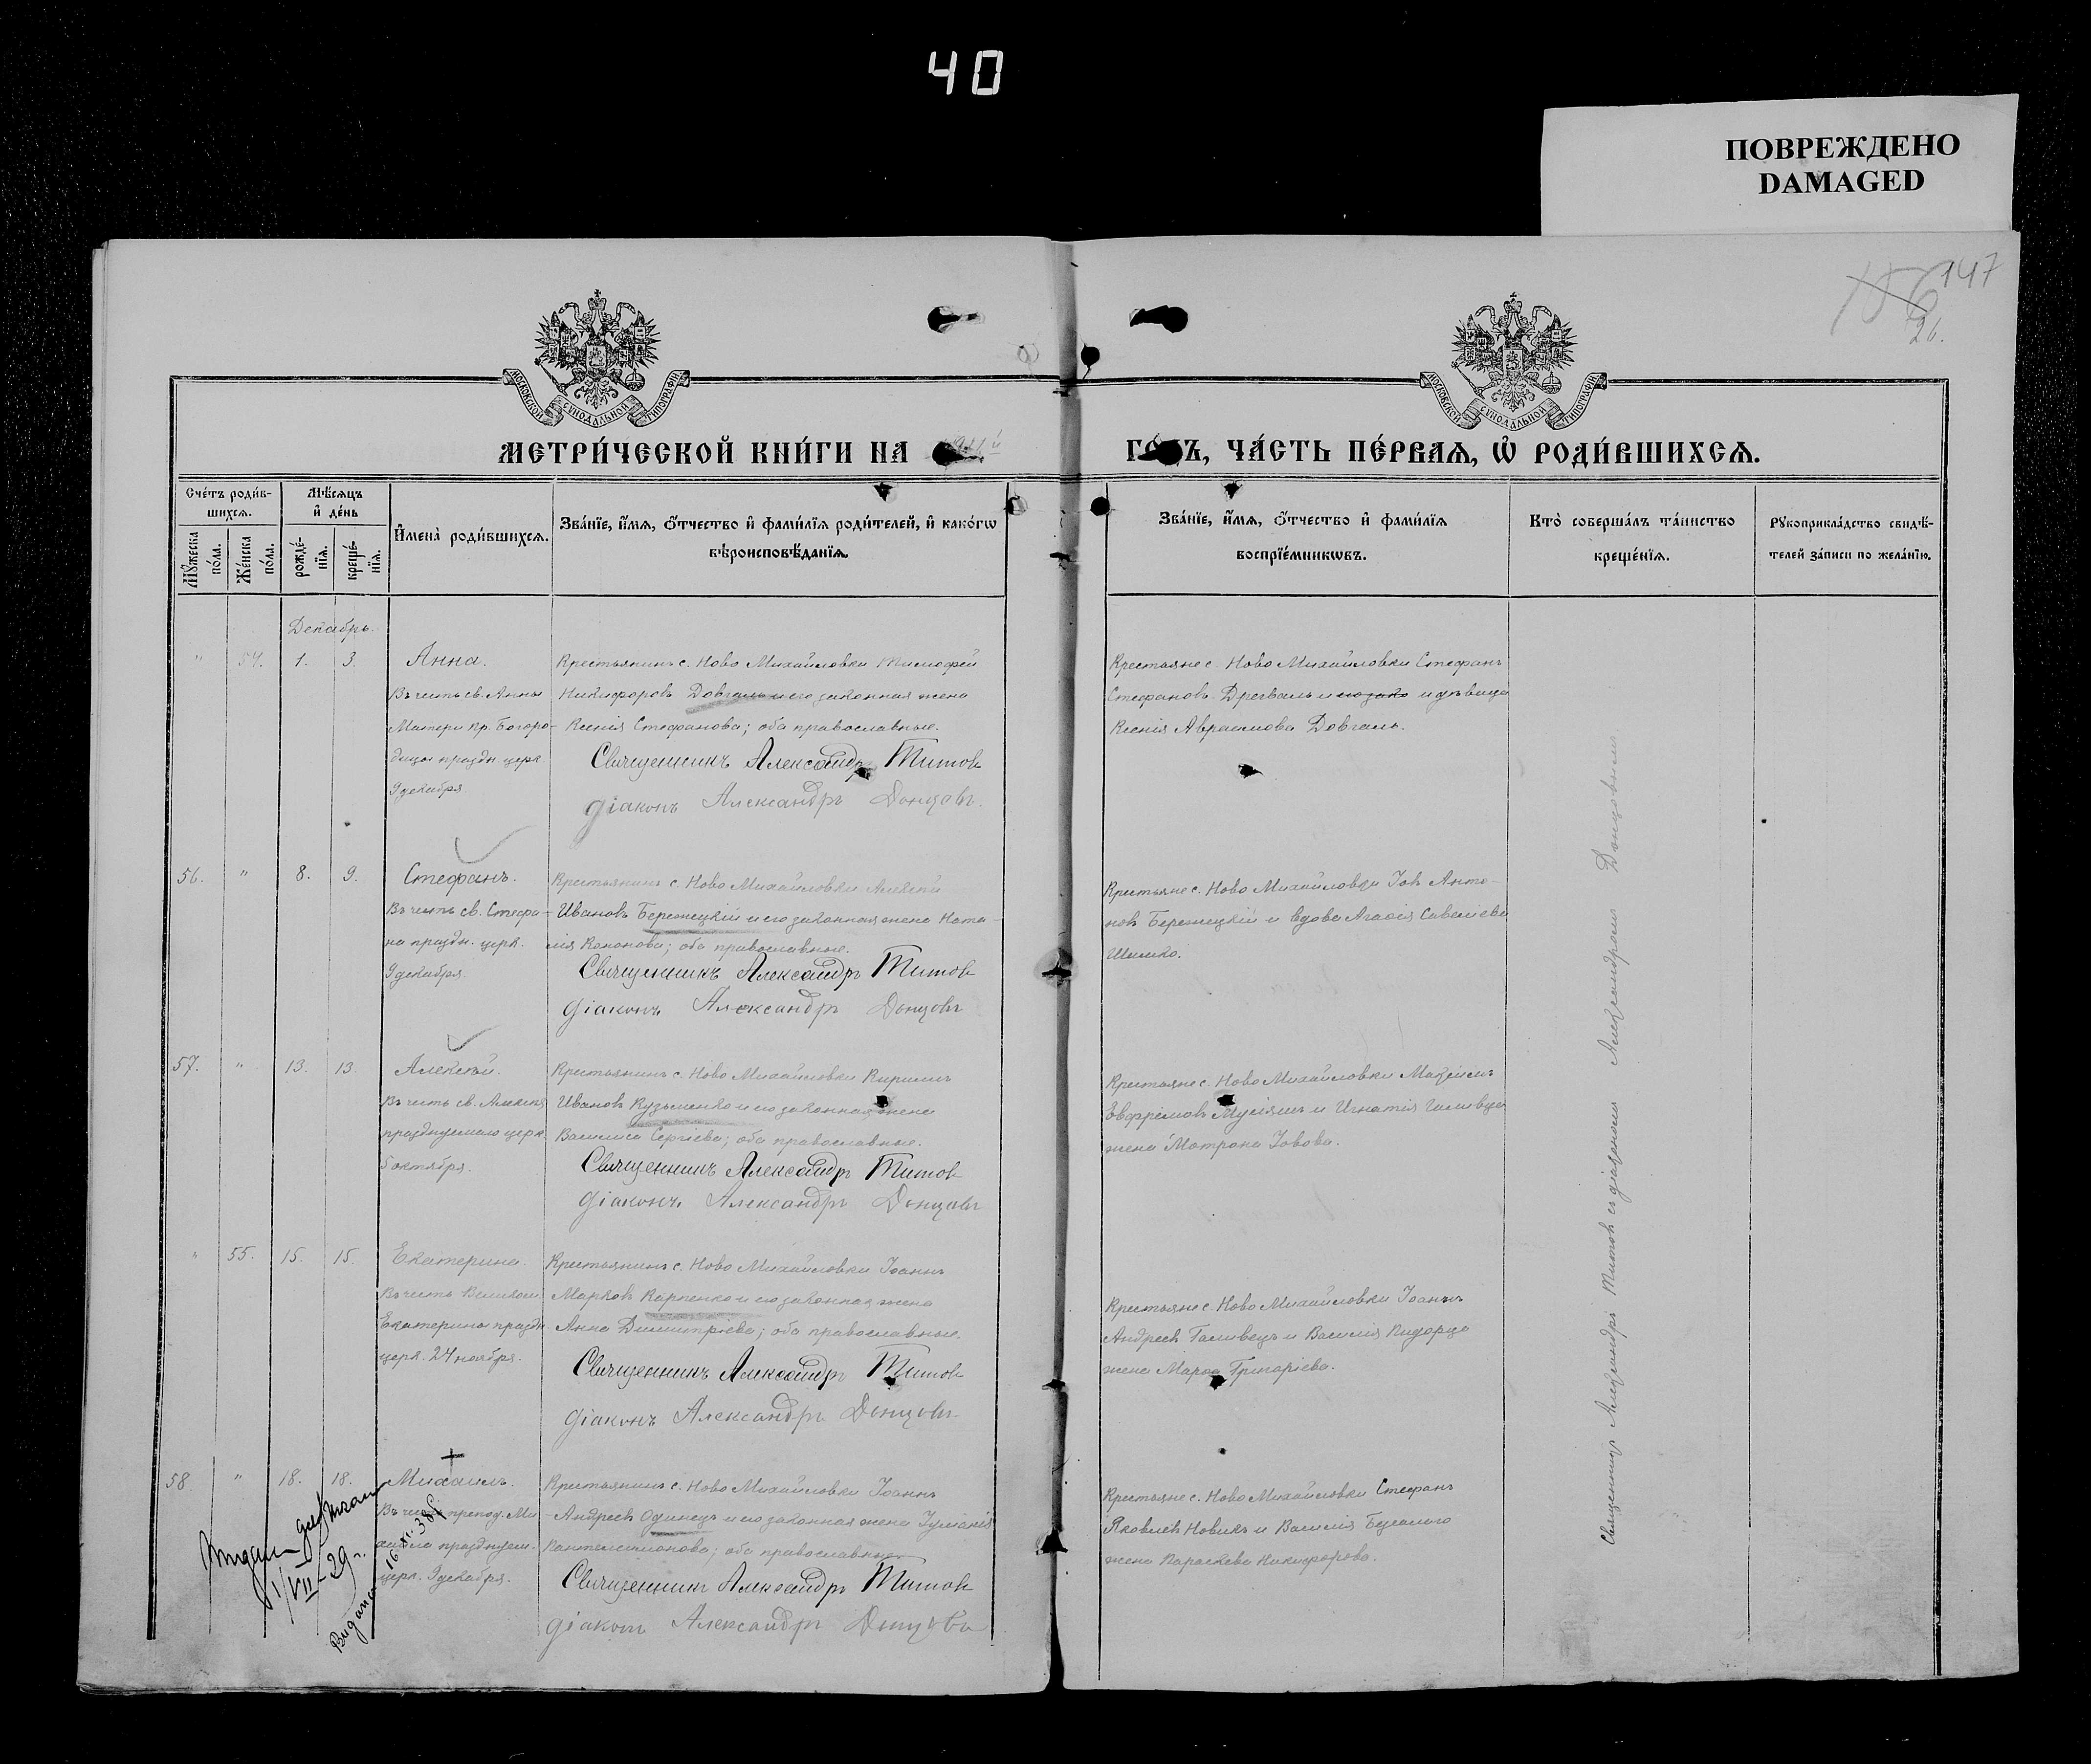 40
ПОВРЕЖДЕНО
DAMAGED
147
26.
МОСКОВСКОЙ СУНОДАЛЬНОЙ ТИПОГРАФІИ
МОСКОВСКОЙ СУНОДАЛЬНОЙ ТИПОГРАФІИ
МЕТРИ́ЧЕСКОЙ КНИ́ГИ НА
ГОДЪ, ЧА́СТЬ ПЕ́РВАѦ, Ѡ҆ РОДИ́ВШИХСѦ.
Сче́тъ роди́в-
шихсѧ.
Мꙋ́жеска по́ла.
Же́нска по́ла.
Мѣ́сѧцъ
и҆ де́нь
рожде́-
нїѧ.
креще́-
нїѧ.
И҆мена̀ роди́вшихсѧ.
Зва́нїе, и҆́мѧ, ѻ҆́тчество и҆ фами́лїѧ роди́телей, и҆ како́гѡ
вѣроисповѣ́данїѧ.
Зва́нїе, и҆́мѧ, ѻ҆́тчество и҆ фами́лїѧ
воспрїе́мникѡвъ.
Кто̀ соверша́лъ та́инство
креще́нїѧ.
Рꙋкоприкла́дство свидѣ́-
телей за́писи по жела́нїю.
Декабрь.
" 54. 1. 3. Анна.
Въ честь св. Анны
Матери пр. Богоро-
дицы праздн церк
9 декабря
Крестьянинъ с. Ново Михайловки Тимофей
Никифоровъ Довгаль и его законная жена
Ксенія Стефанова; оба православные.
Священникъ Александръ Титовъ
Діаконъ Александръ Донцовъ.
Крестьяне с. Ново Михайловки Стефанъ
Стефановъ Дрегваль и его зако и дѣвица
Ксенія Авраамова Довгаль.
56. " 8. 9. Стефанъ.
Въ честь св. Стефа-
на праздн. церк.
9 декабря.
Крестьянинъ с. Ново Михайловки Алексѣй
Ивановъ Бережецкій и его законная жена Ната-
лія Кононова; оба православные.
Священникъ Александръ Титовъ
Діаконъ Александръ Донцовъ
Крестьяне с. Ново Михайловки Іовъ Анто-
новъ Бережецкій и вдова Агафія Савеліева
Шишко.
57. " 13. 13. Алексѣй.
Въ честь св. Алексѣя
празднуемаго церк.
5 октября.
Крестьянинъ с. Ново Михайловки Кириллъ
Ивановъ Кузьменко и его законная жена
Василиса Сергіева; оба православные.
Священникъ Александръ Титовъ
Діаконъ Александръ Донцовъ
Крестьяне с. Ново Михайловки Максимъ
Евфремовъ и Игнатія
жена Матрона Іовова.
" 55. 15. 15. Екатерина.
Въ честь Великом.
Екатерины праздн
церк. 24 ноября.
Крестьянинъ с. Ново Михайловки Іоаннъ
Марковъ Карпенко и его законная жена
Анна Димитріева; оба православные.
Священникъ Александръ Титовъ
Діаконъ Александръ Донцовъ
Крестьяне с. Ново Михайловки Іоаннъ
Андреевъ Галивецъ и Василія
жена Марфа Григоріева.
58 " 18. 18. Михаилъ.
Въ честь препод. Ми-
хаила празднуем.
церк. 9 декабря.
Крестьянинъ с. Ново Михайловки Іоаннъ
Андреевъ Одинецъ и его законная жена Іуліанія
Пантелеимонова; оба православные.
Священникъ Александръ Титовъ
Діаконъ Александръ Донцовъ
Крестьяне с. Ново Михайловки Стефанъ
Яковлевъ Новикъ и Василія
жена Параскева Никифорова.
1/VII-29 г.
Видана 16
Священникъ Александръ Титовъ съ діакономъ Александромъ Донцовымъ